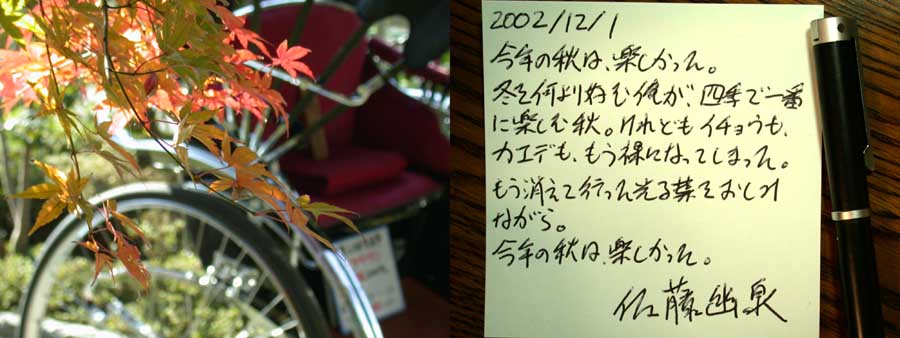 2002/12/1
今年の秋は、楽しかった。
冬を何より好む俺が、四季で一番
に楽しむ秋。けれどもイチョウも、
カエデも、もう裸になってしまった。
もう消えて行った光る葉をおしみ
ながら。
今年の秋は、楽しかった。
佐藤幽泉